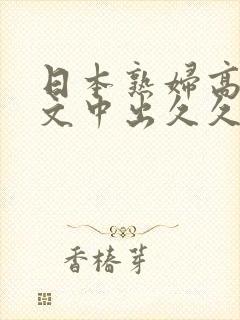 日本熟婦高
文中出久久
香椿芽